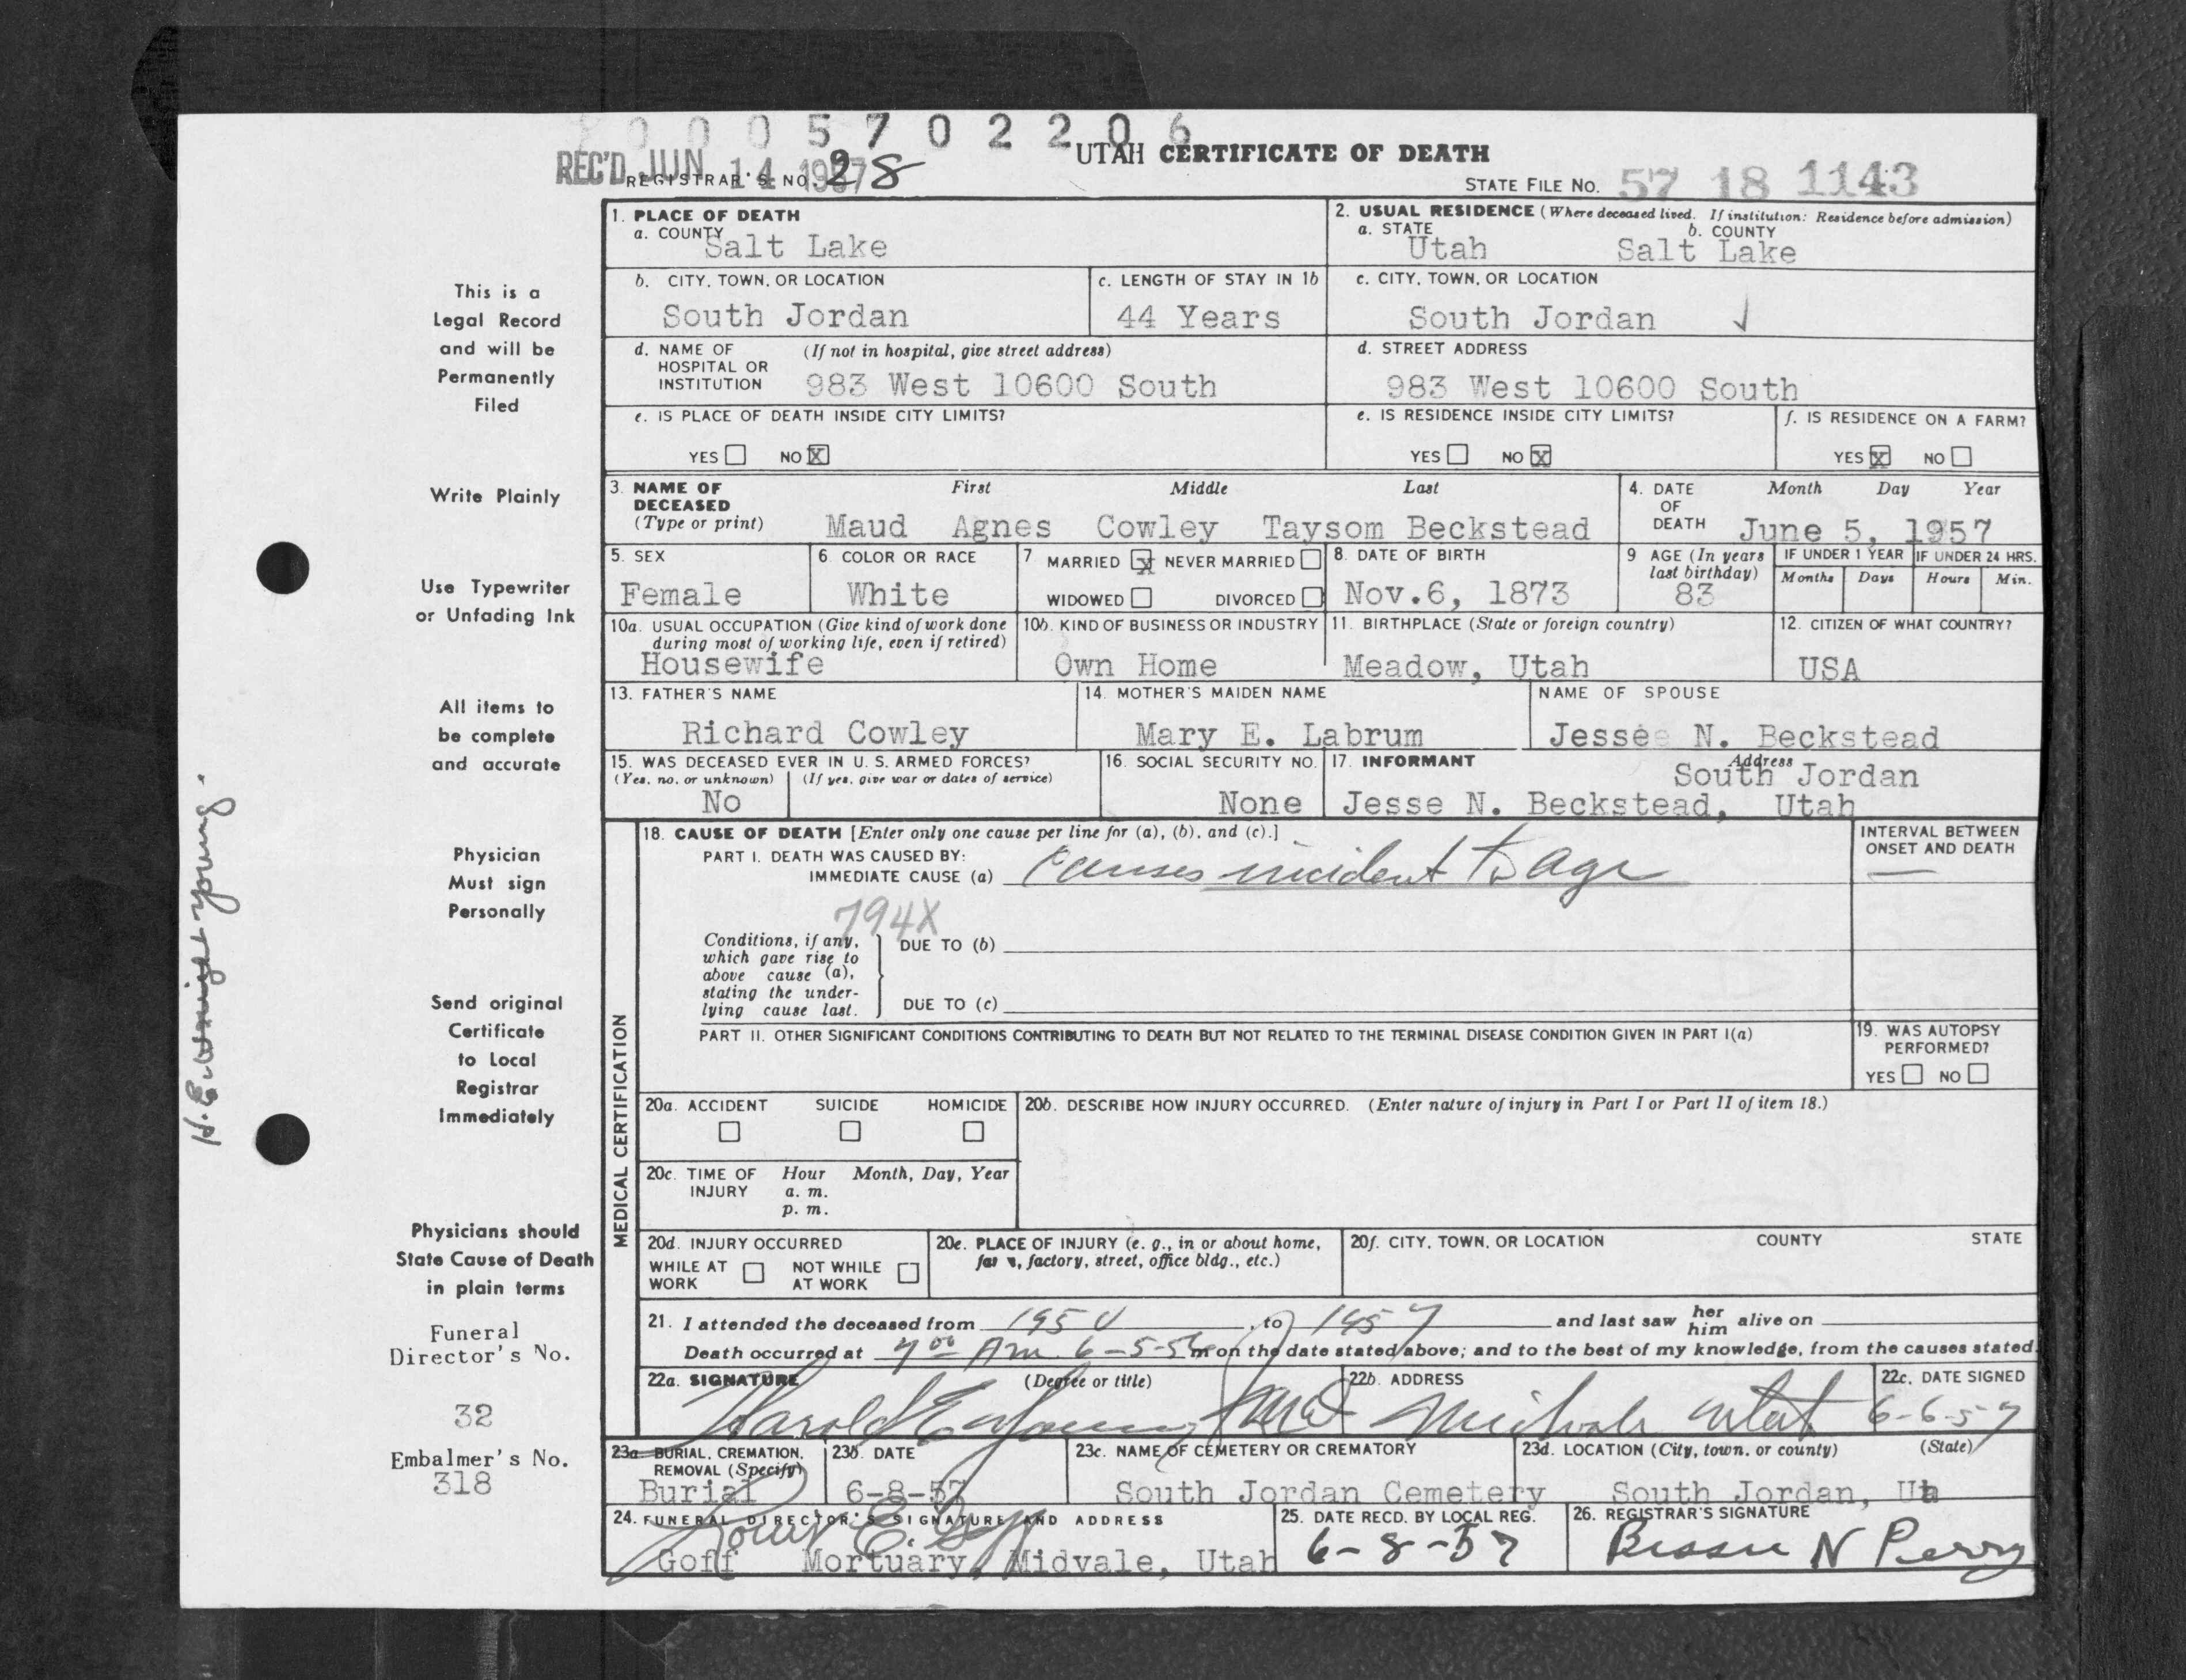 0 0 0 5 7 0 2 2 0 6
UTAH CERTIFICATE OF DEATH
REC'D JUN 14 1957
REGISTRAR'S NO. 28
STATE FILE NO. 57 18 1143
1. PLACE OF DEATH
a. COUNTY Salt Lake
2. USUAL RESIDENCE (Where deceased lived. If institution: Residence before admission)
a. STATE Utah b. COUNTY Salt Lake
b. CITY, TOWN, OR LOCATION South Jordan
c. LENGTH OF STAY IN 1b 44 Years
c. CITY, TOWN, OR LOCATION South Jordan ✓
d. NAME OF HOSPITAL OR INSTITUTION (If not in hospital, give street address) 983 West 10600 South
d. STREET ADDRESS 983 West 10600 South
e. IS PLACE OF DEATH INSIDE CITY LIMITS?
YES ☐ NO ☒
e. IS RESIDENCE INSIDE CITY LIMITS?
YES ☐ NO ☒
f. IS RESIDENCE ON A FARM?
YES ☒ NO ☐
3. NAME OF DECEASED (Type or print)
First Middle Last
Maud Agnes Cowley Taysom Beckstead
4. DATE OF DEATH Month Day Year
June 5, 1957
5. SEX Female
6. COLOR OR RACE White
7 MARRIED ☒ NEVER MARRIED ☐
WIDOWED ☐ DIVORCED ☐
8. DATE OF BIRTH Nov.6, 1873
9 AGE (In years last birthday) 83
IF UNDER 1 YEAR Months Days
IF UNDER 24 HRS. Hours Min.
10a. USUAL OCCUPATION (Give kind of work done during most of working life, even if retired) Housewife
10b. KIND OF BUSINESS OR INDUSTRY Own Home
11. BIRTHPLACE (State or foreign country) Meadow, Utah
12. CITIZEN OF WHAT COUNTRY? USA
13. FATHER'S NAME Richard Cowley
14. MOTHER'S MAIDEN NAME Mary E. Labrum
NAME OF SPOUSE Jesse N. Beckstead
15. WAS DECEASED EVER IN U. S. ARMED FORCES?
(Yes, no, or unknown) (If yes, give war or dates of service)
No
16. SOCIAL SECURITY NO. None
17. INFORMANT Address
South Jordan
Jesse N. Beckstead, Utah
MEDICAL CERTIFICATION
18. CAUSE OF DEATH [Enter only one cause per line for (a), (b), and (c).]
PART I. DEATH WAS CAUSED BY:
IMMEDIATE CAUSE (a) Causes incident to age
INTERVAL BETWEEN ONSET AND DEATH
—
794X
Conditions, if any, which gave rise to above cause (a), stating the underlying cause last.
DUE TO (b)
DUE TO (c)
PART II. OTHER SIGNIFICANT CONDITIONS CONTRIBUTING TO DEATH BUT NOT RELATED TO THE TERMINAL DISEASE CONDITION GIVEN IN PART I(a)
19. WAS AUTOPSY PERFORMED?
YES ☐ NO ☐
20a. ACCIDENT SUICIDE HOMICIDE
☐ ☐ ☐
20b. DESCRIBE HOW INJURY OCCURRED. (Enter nature of injury in Part I or Part II of item 18.)
20c. TIME OF INJURY Hour Month, Day, Year
a. m.
p. m.
20d. INJURY OCCURRED
WHILE AT WORK ☐ NOT WHILE AT WORK ☐
20e. PLACE OF INJURY (e. g., in or about home, farm, factory, street, office bldg., etc.)
20f. CITY, TOWN, OR LOCATION COUNTY STATE
21. I attended the deceased from , to 1957 and last saw her him alive on
Death occurred at 7 00 Am 6-5- m on the date stated above; and to the best of my knowledge, from the causes stated.
22a. SIGNATURE (Degree or title) Harold E. Young MD
22b. ADDRESS Midvale Utah
22c. DATE SIGNED 6-6-57
23a BURIAL, CREMATION, REMOVAL (Specify) Burial
23b. DATE 6-8-57
23c. NAME OF CEMETERY OR CREMATORY South Jordan Cemetery
23d. LOCATION (City, town, or county) (State) South Jordan, Ut
24. FUNERAL DIRECTOR'S SIGNATURE AND ADDRESS
E. Goff
Goff Mortuary, Midvale, Utah
25. DATE RECD. BY LOCAL REG. 6-8-57
26. REGISTRAR'S SIGNATURE Bessie N Perry
This is a
Legal Record
and will be
Permanently
Filed
Write Plainly
Use Typewriter
or Unfading Ink
All items to
be complete
and accurate
Physician
Must sign
Personally
Send original
Certificate
to Local
Registrar
Immediately
Physicians should
State Cause of Death
in plain terms
Funeral
Director's No.
32
Embalmer's No.
318
H.E. young.